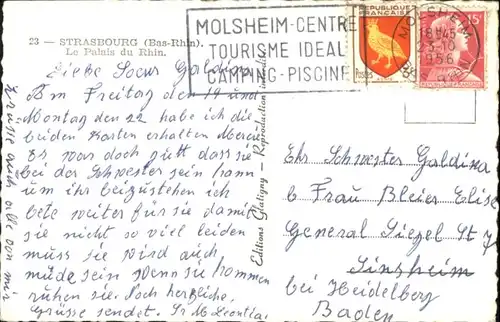 23 — STRASBOURG (Bas-Rhin).
Le Palais du Rhin.
MOLSHEIM-CENTRE
TOURISME IDEAL
CAMPING-PISCINE
RÉPUBLIQUE FRANÇAISE
Postes
MOLSHEIM
18H45
23-10
1956
BAS-RHIN
15F
Liebe Soeur Galdina
Am Freitag den 19 und
Montag den 22 habe ich die
beiden Karten erhalten Merci
Es war doch gutt dass sie
bei der Schwester sein kann
um ihr beizustehen ich
bete weiter für sie damit
sie nicht so viel leiden
muss sie wird auch
müde sein wenn sie kommen
ruhen sie. Noch herzliche
Grüsse sendet. Sr M. Leontia
Grüsse auch alle von mir
Editions Glatigny — Reproduction interdite
Ehr Schwester Galdina
b Frau Bleier Elise
General Siegel St 7
Sinsheim
bei Heidelberg
Baden